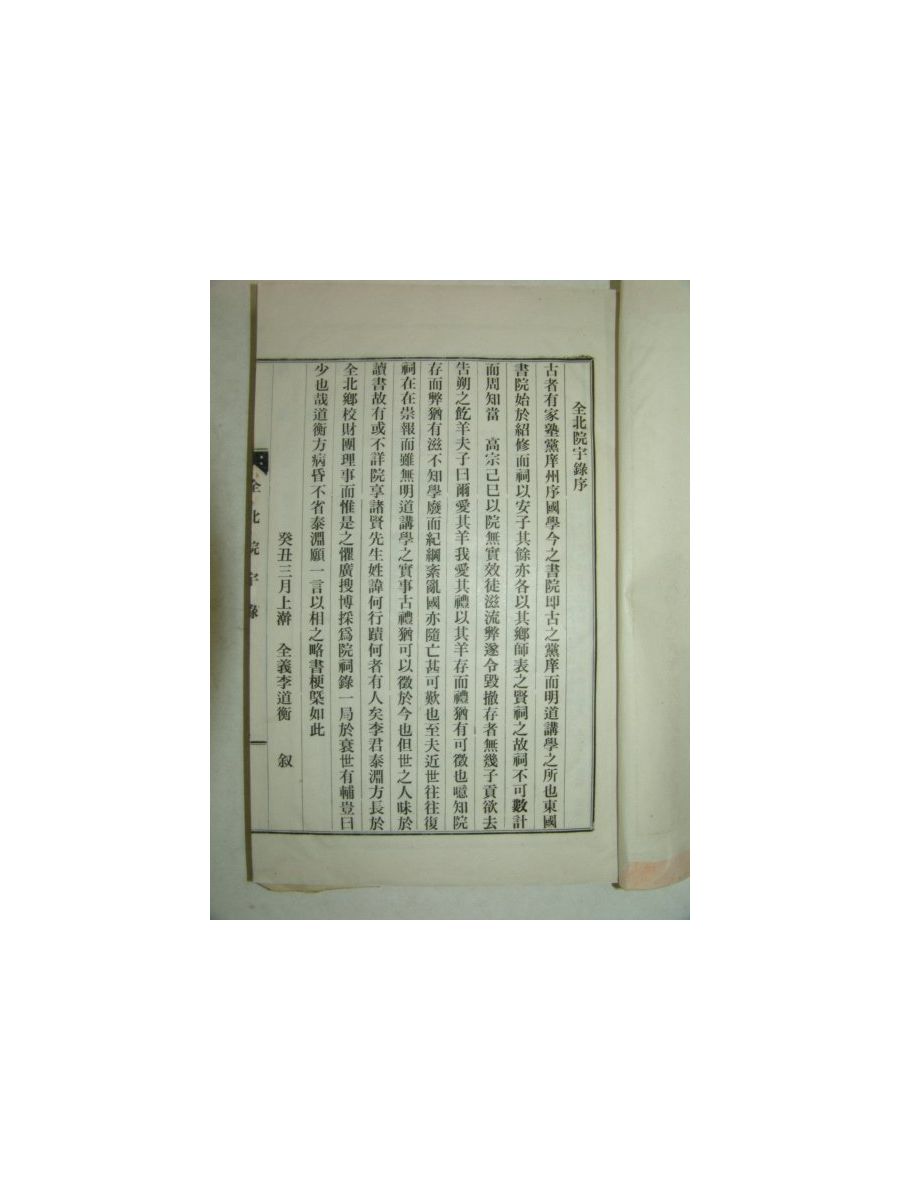 全北院宇錄序
古者有家塾黨庠州序國學今之書院即古之黨庠而明道講學之所也東國
書院始於紹修而祠以安子其餘亦各以其鄉師表之賢祠之故祠不可數計
而周知當　高宗己巳以院無實效徒滋流弊遂令毀撤存者無幾子貢欲去
告朔之餼羊夫子曰爾愛其羊我愛其禮以其羊存而禮猶有可徵也噫知院
存而弊猶有滋不知學廢而紀綱紊亂國亦隨亡甚可歎也至夫近世往往復
祠在在崇報而雖無明道講學之實事古禮猶可以徵於今也但世之人味於
讀書故有或不詳院享諸賢先生姓諱何行蹟何者有人矣李君泰淵方長於
全北鄉校財團理事而惟是之懼廣搜博採爲院祠錄一局於衰世有輔豈曰
少也哉道衡方病昏不省泰淵願一言以相之略書梗槩如此
癸丑三月上澣　全義李道衡　叙
全北院宇錄